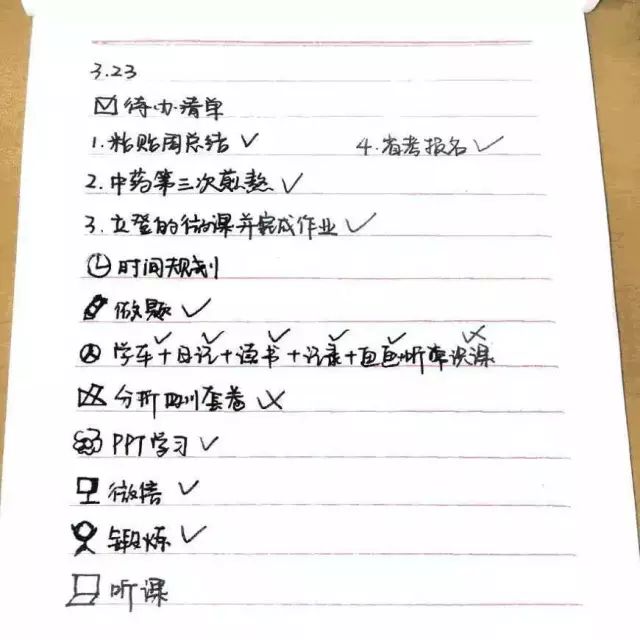 3.23
☑待办清单
1.粘贴周总结✓ 4.省考报名✓
2.中药第三次煎熬✓
3.立登的微课并完成作业✓
时间规划
做题✓
学车+日记+语书+记录+直色听常识课
分析四川套卷✗
PPT学习✓
微信✓
锻炼✓
听课